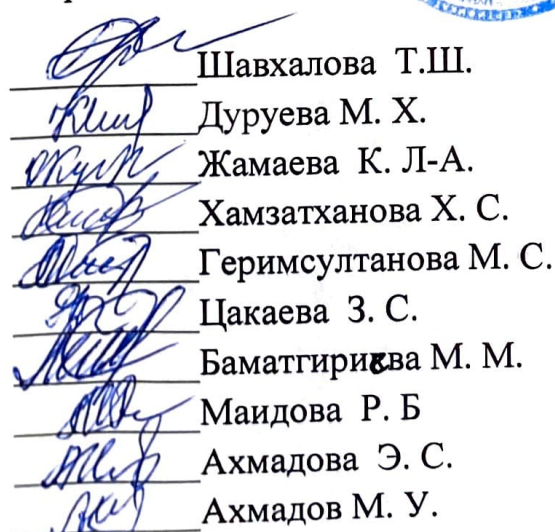 Шавхалова Т.Ш.
Дуруева М. Х.
Жамаева К. Л-А.
Хамзатханова Х. С.
Геримсултанова М. С.
Цакаева З. С.
Баматгириева М. М.
Маидова Р. Б
Ахмадова Э. С.
Ахмадов М. У.